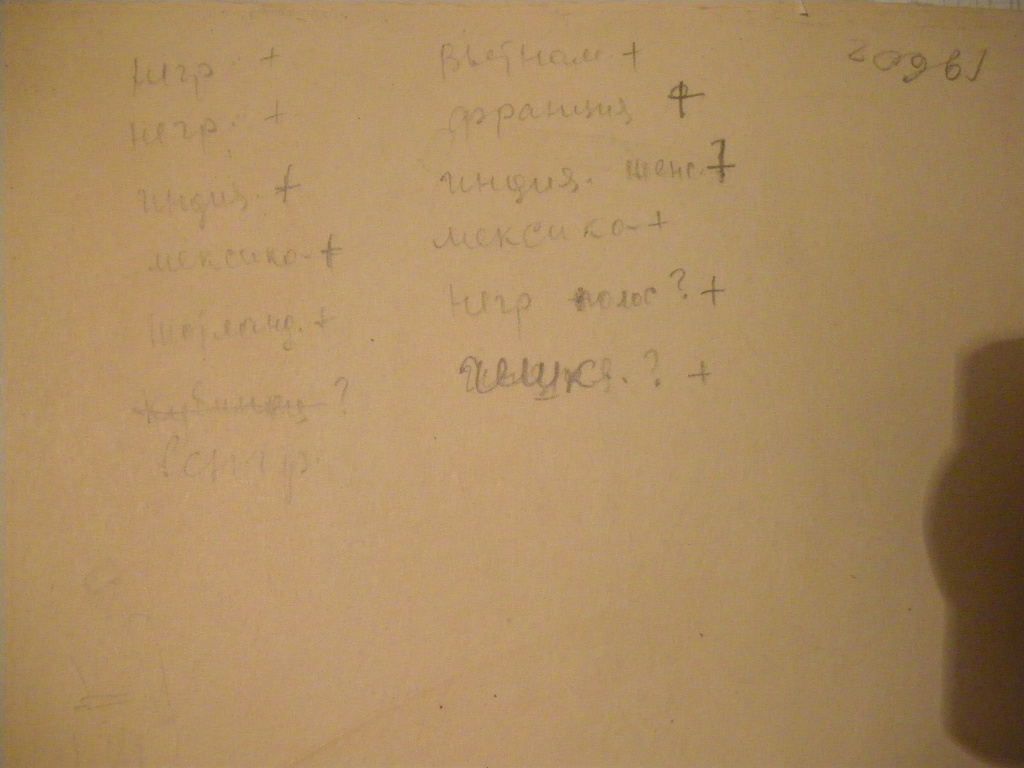 негр +
негр. +
индия. +
мексико- +
шотланд. +
кубинец ?
венгр.
вьетнам +
франция +
индия. женс. +
мексико- +
негр полос ? +
? +